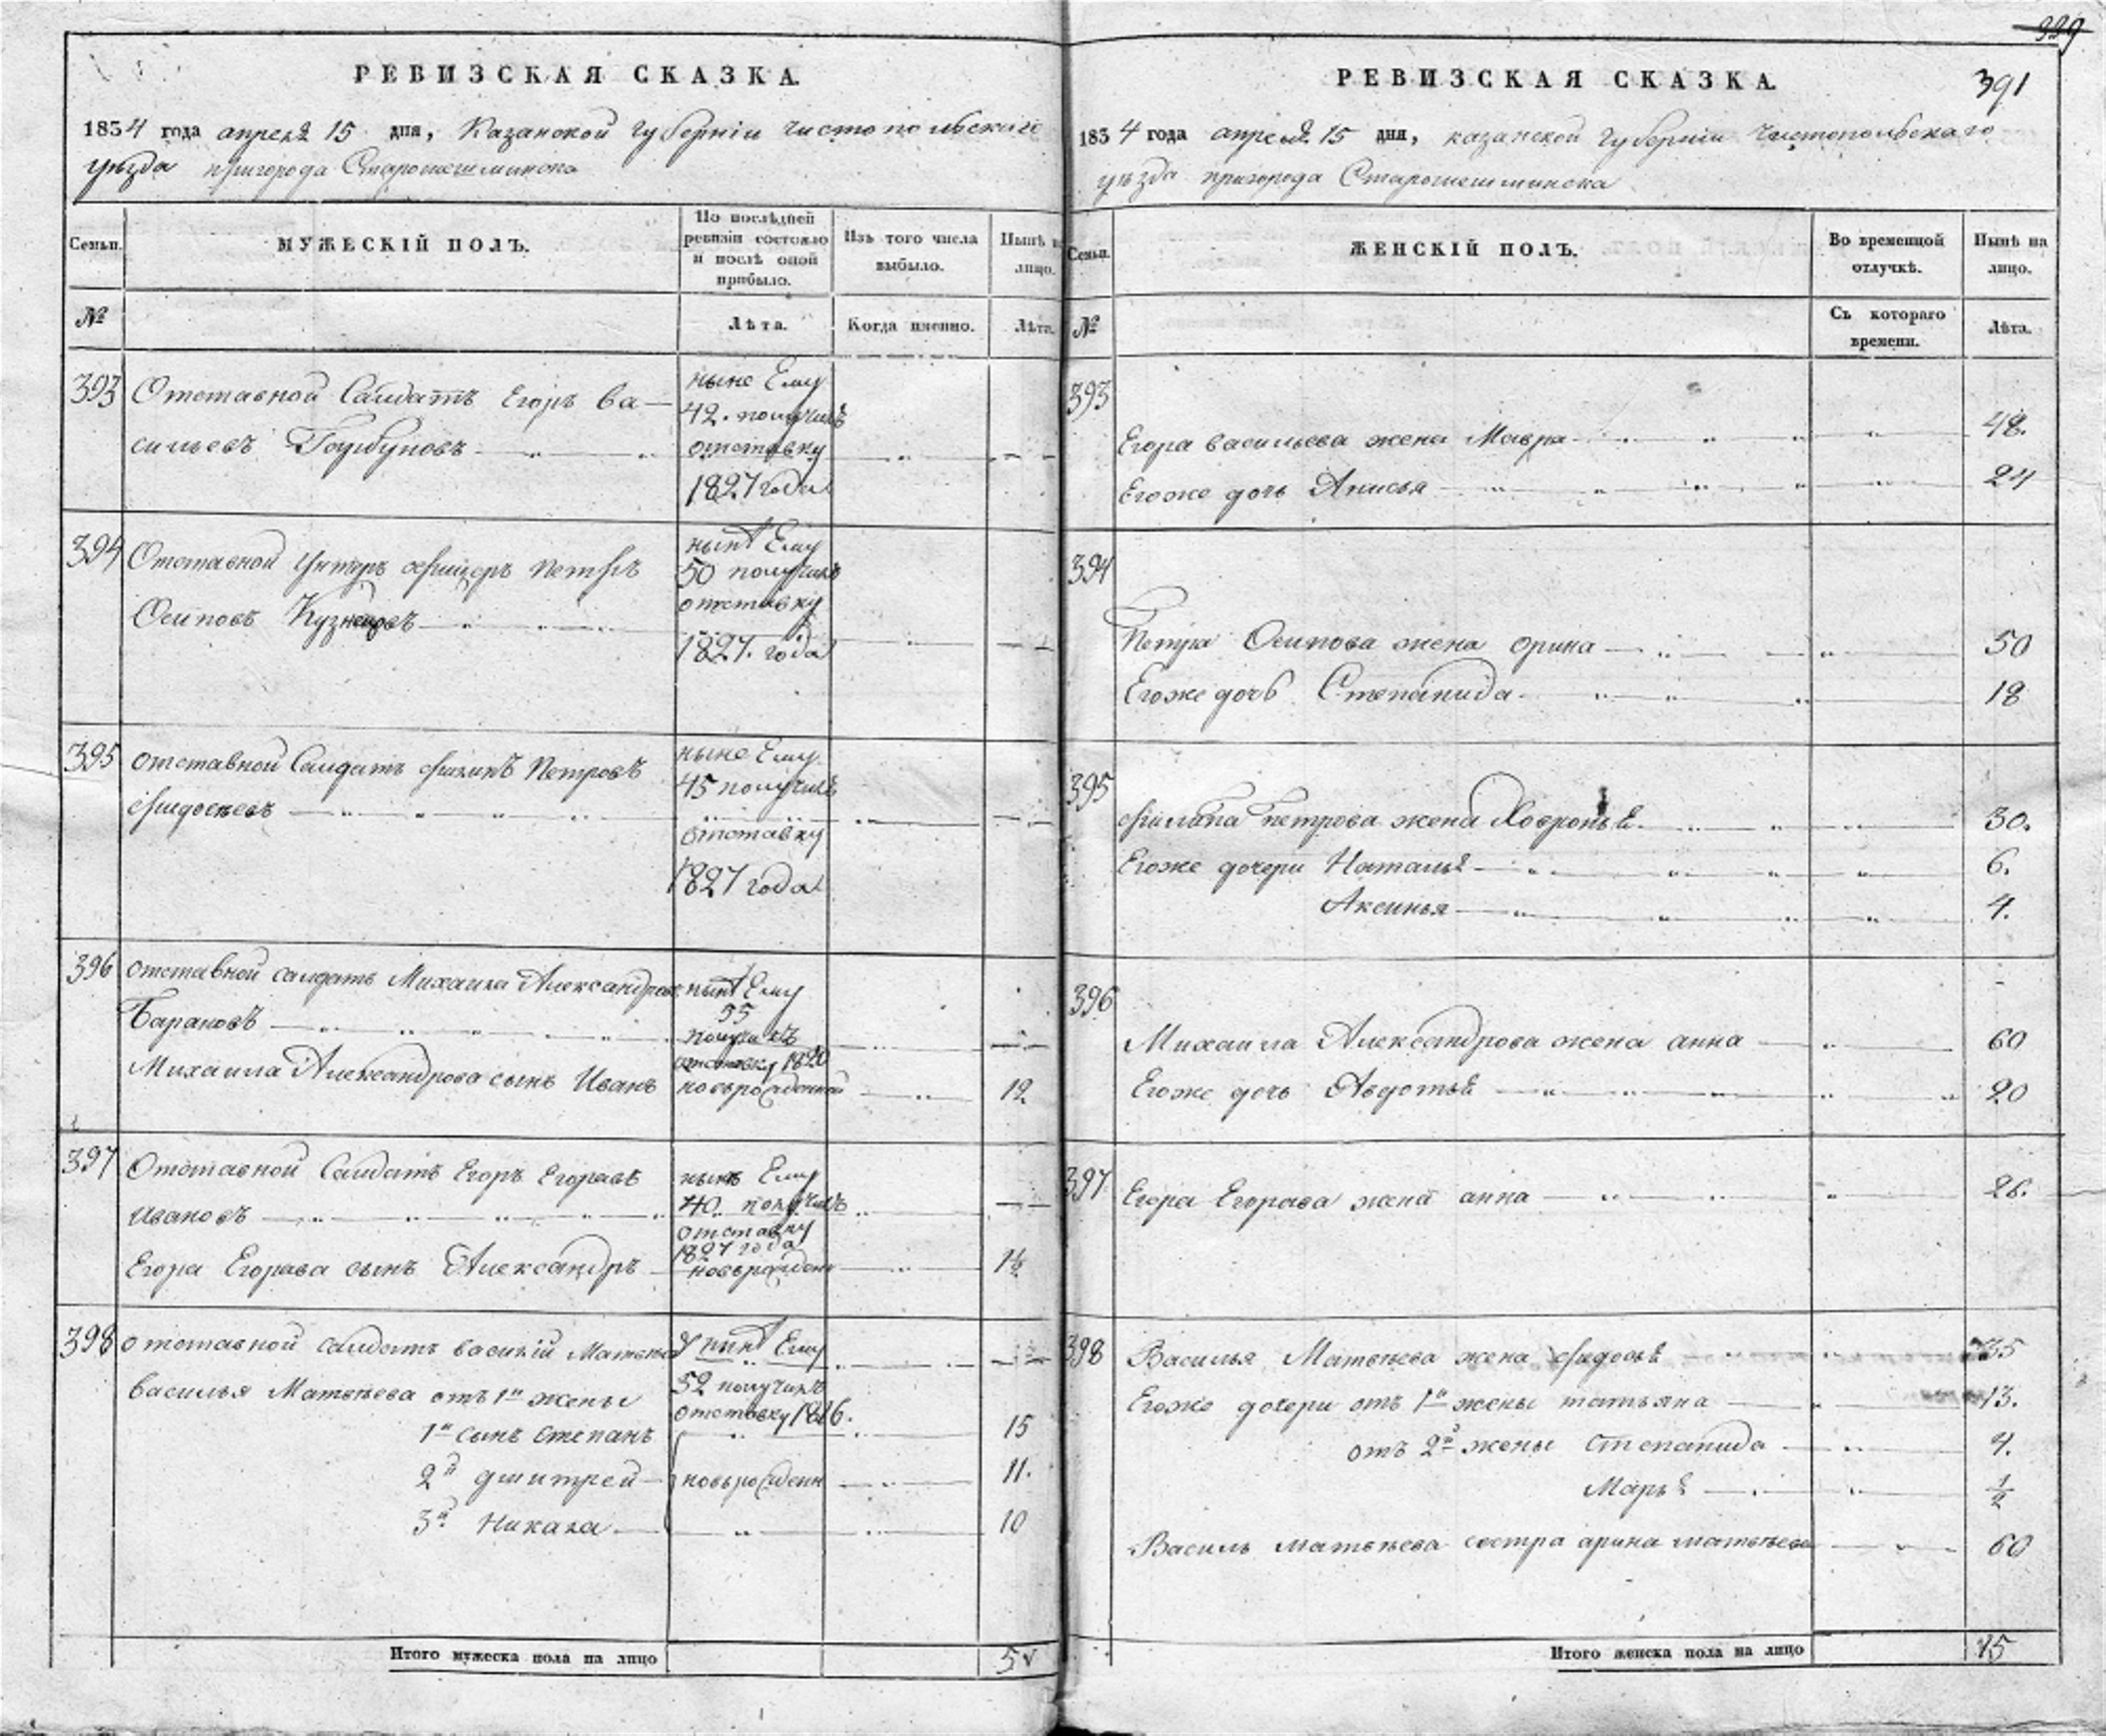 РЕВИЗСКАЯ СКАЗКА.
1834 года апреля 15 дня, Казанской губерніи чистопольскаго
уѣзда пригорода Старошешминска
Семьи.
МУЖЕСКІЙ ПОЛЪ.
По послѣдней ревизіи состояло и послѣ оной прибыло.
Изъ того числа выбыло.
Нынѣ на лицо.
№
Лѣта.
Когда именно.
Лѣта.
393 Отставной Салдатъ Егоръ Ва-
сильевъ Горбуновъ
ныне Ему
42. получилъ
отставку
1827 года
394 Отставной Унтеръ офицеръ Петръ
Осиповъ Кузнецовъ
нынѣ Ему
50 получилъ
отставку
1827. года
395 отставной Салдатъ филипъ Петровъ
ныне Ему
45 получилъ
отставку
1827 года
396 отставной салдатъ Михаила Александровъ
Барановъ
нынѣ Ему
55
получилъ
отставку 1820
Михаила Александрова сынъ Иванъ новьрожденной 12
397 Отставной Салдатъ Егоръ Егоравъ
Ивановъ
нынѣ Ему
40. получилъ
отставку
1827 года
Егора Егорава сынъ Александръ новьрожден
398 отставной салдатъ василій Матвѣевъ нынѣ Ему
52 получилъ
отставку 1826.
василья Матвѣева отъ 1й жены
1й сынъ Степанъ 15
2й дмитрей новьрожденн 11.
3й Никала 10
Итого мужеска пола на лицо 5
339
391
РЕВИЗСКАЯ СКАЗКА.
1834 года апреля 15 дня, казанской губерніи Чистопольскаго
уѣзда пригорода Старошешминска
Семьи.
ЖЕНСКІЙ ПОЛЪ.
Во временной отлучкѣ.
Нынѣ на лицо.
№
Съ котораго времени.
Лѣта.
393
Егора васильева жена Мавра 48.
Егоже дочь Анисья 24
394
Петра Осипова жена орина 50
Егоже дочь Степанида 18
395
филипа Петрова жена Ховронья 30.
Егоже дочери Наталья 6.
Аксинья 4.
396
Михаила Александрова жена анна 60
Егоже дочь Авдотья 20
397 Егора Егорава жена анна 26.
398 Василья Матвѣева жена федосья 35
Егоже дочери отъ 1й жены татьяна 13.
отъ 2й жены Степанида 4.
Марья ½
Василь матвѣева сестра арина матвѣева 60
Итого женска пола на лицо 15